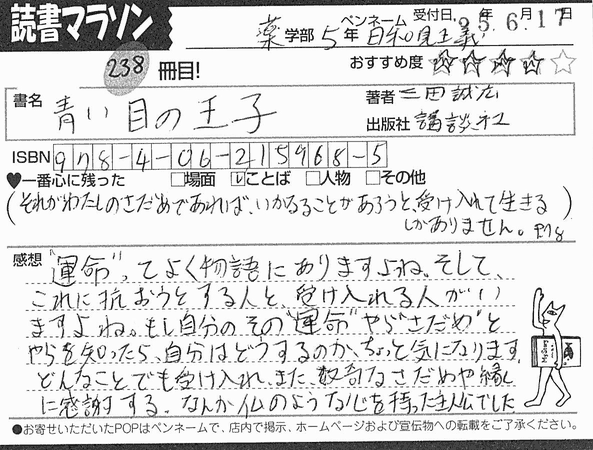 読書マラソン
受付日 25年6月17日
薬学部 5年 ペンネーム 日和見主義
238 冊目!
おすすめ度 ★★★★☆
書名 青い目の王子
著者 三田誠広
出版社 講談社
ISBN 978-4-06-215968-5
♥一番心に残った □場面 ☑ことば □人物 □その他
(それがわたしのさだめであれば、いかなることがあろうと、受け入れて生きる
しかありません。P78)
感想 "運命"ってよく物語にありますよね。そして、
これに抗おうとする人と、受け入れる人がい
ますよね。もし自分のその"運命"やら"さだめ"と
やらを知ったら、自分はどうするのか、ちょっと気になります
どんなことでも受け入れ、また、数奇なさだめや縁
に感謝する。なんか仏のような心を持った主人公でした
●お寄せいただいたPOPはペンネームで、店内で掲示、ホームページおよび宣伝物への転載をご了承ください。